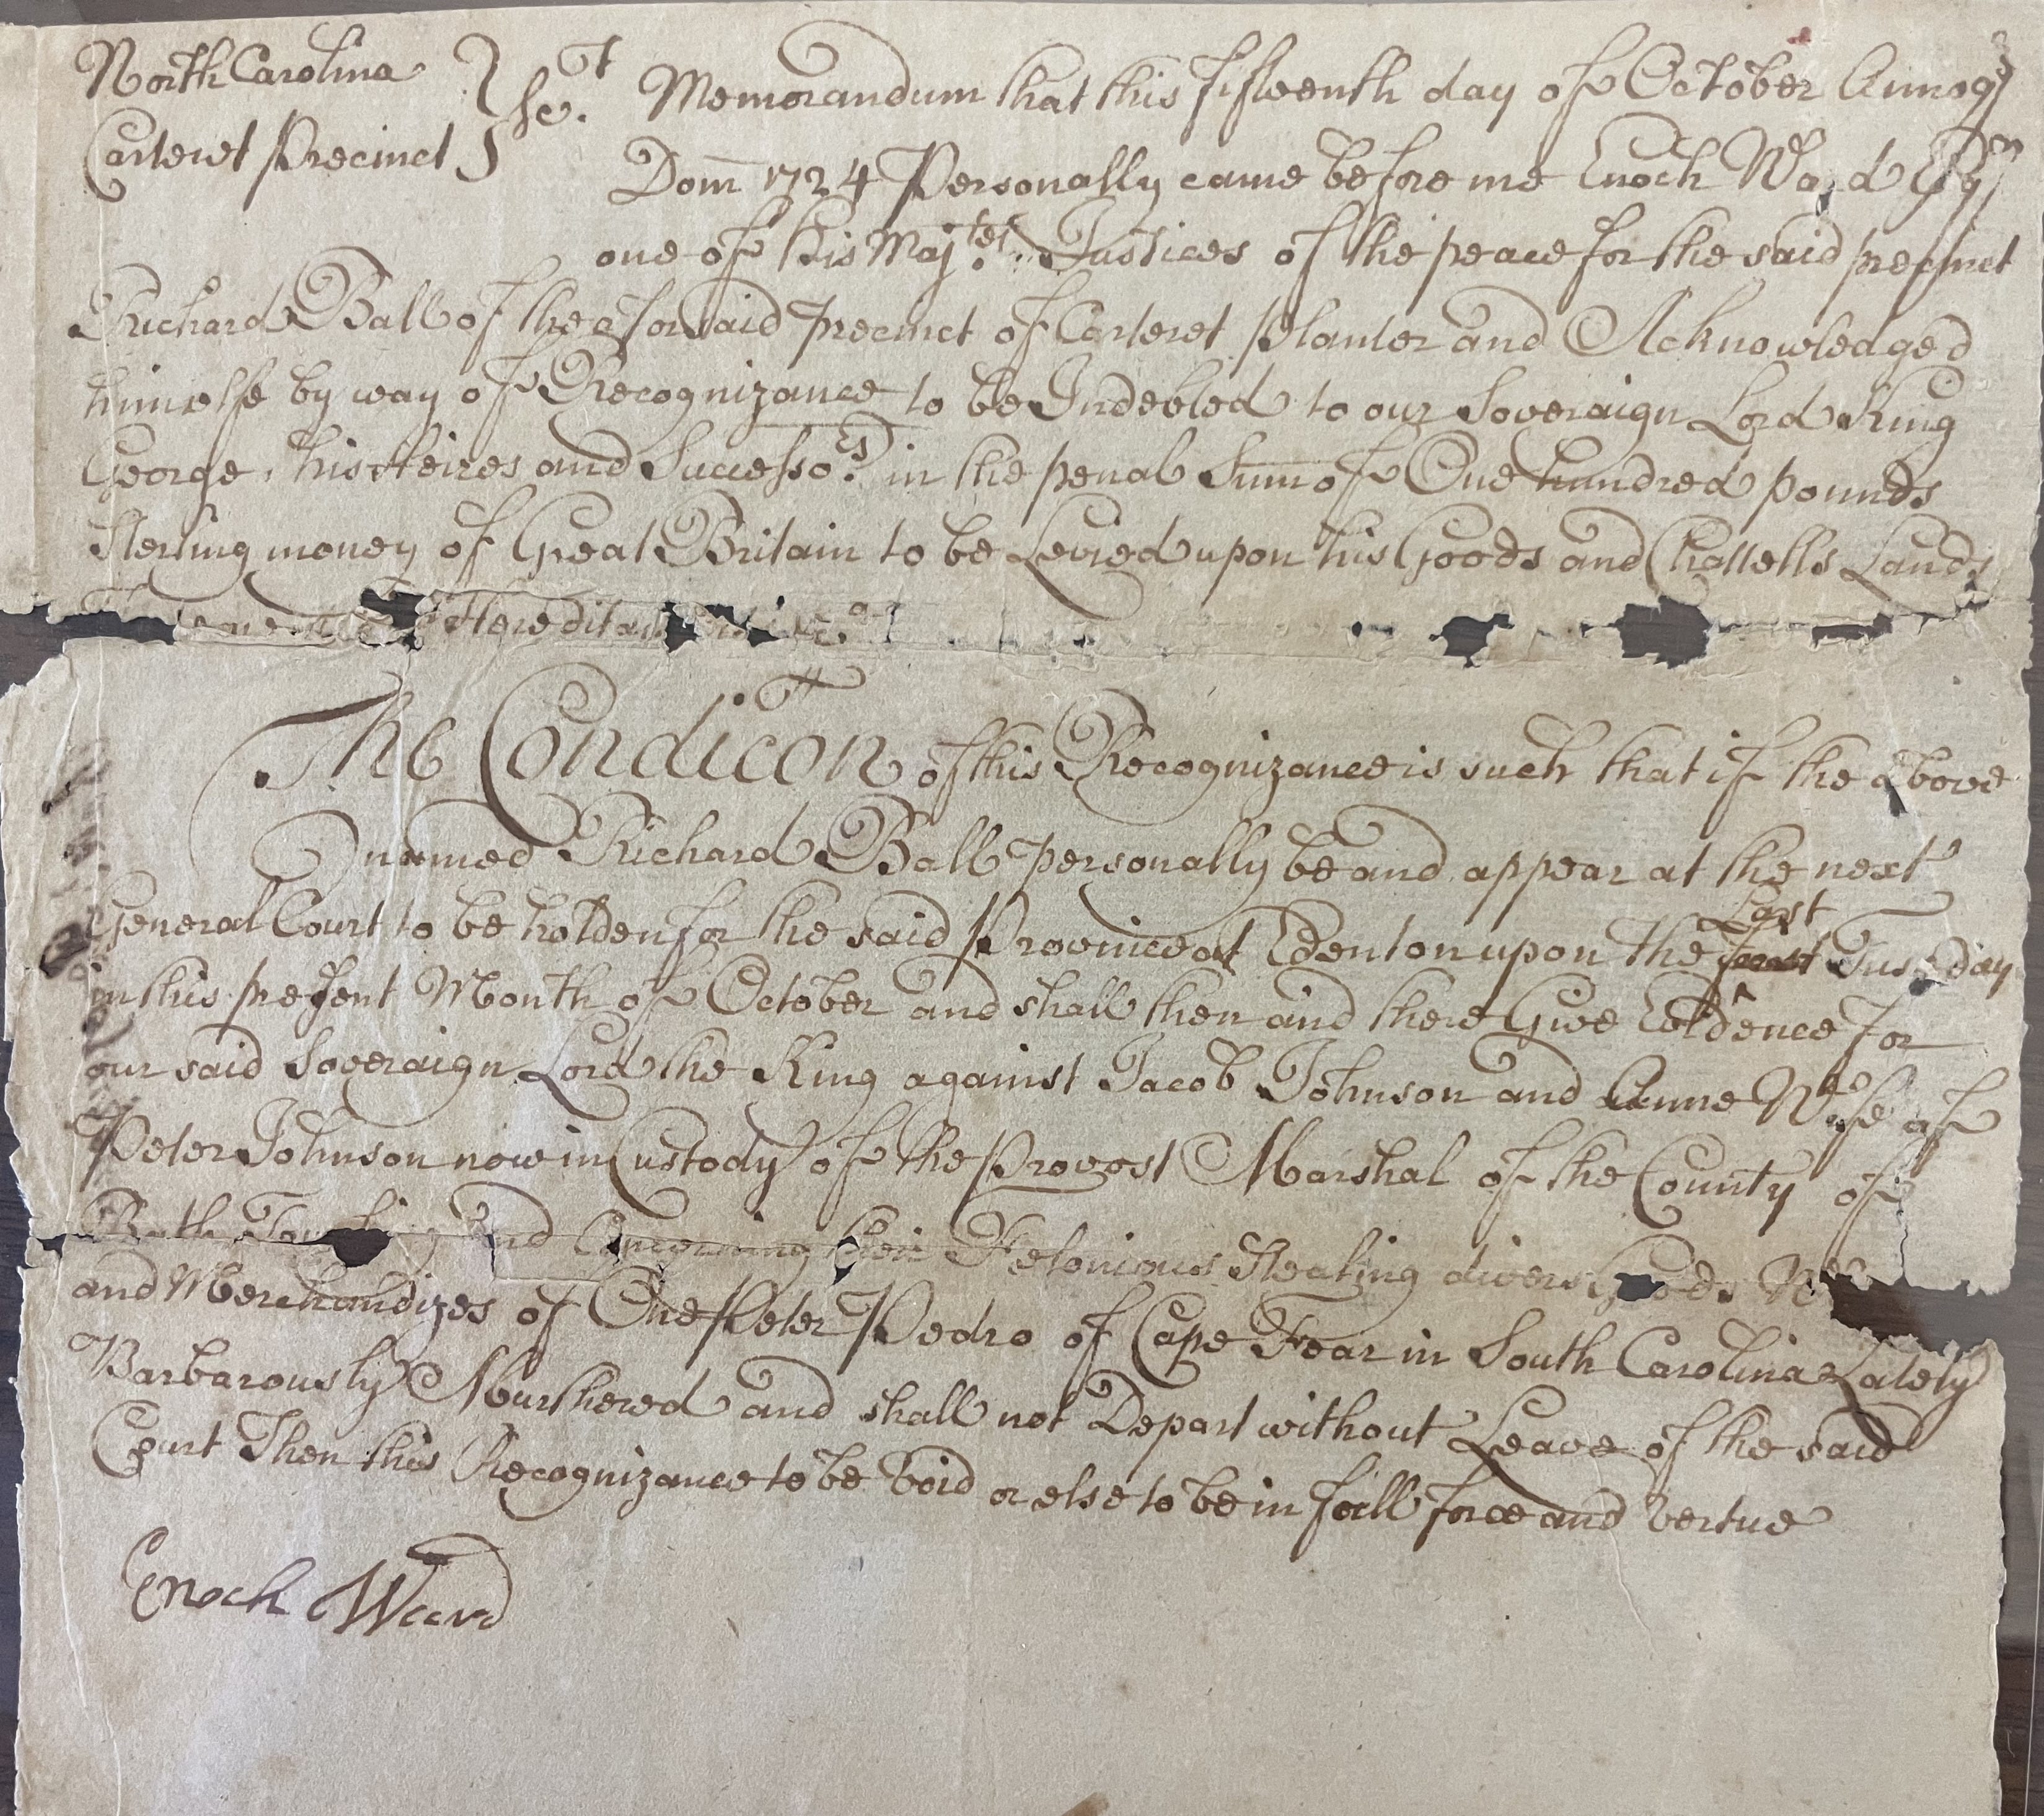 North Carolina } Sc.t Memorandum that this fifteenth day of October Annoq
Carteret Precinct } Dom 1724 Personally came before me Enoch Ward Esqr
one of his Maj.ties Justices of the peace for the said precinct
Richard Ball of the aforesaid precinct of Carteret Planter and Acknowledged
himselfe by way of Recognizance to be Indebted to our Soveraign Lord King
George, his Heires and Successo.rs in the penal Summ of One hundred pounds
Sterling money of Great Britain to be Levied upon his Goods and Chattells Lands
Hereditam
The Condicon of this Recognizance is such that if the above
named Richard Ball personally be and appear at the next
General Court to be holden for the said Province at Edenton upon the Last Tuseday
in this present Month of October and shall then and there Give Evidence for
our said Soveraign Lord the King against Jacob Johnson and Anne Wife of
Peter Johnson now in Custody of the Provost Marshal of the County of
Bath Touching and Concerning their Felonious Stealing divers Goods
and Merchandizes of One Peter Pedro of Cape Fear in South Carolina Lately
Barbarously Murthered and shall not Depart without Leave of the said
Court Then this Recognizance to be Void or else to be in full force and Vertue
Enoch Ward